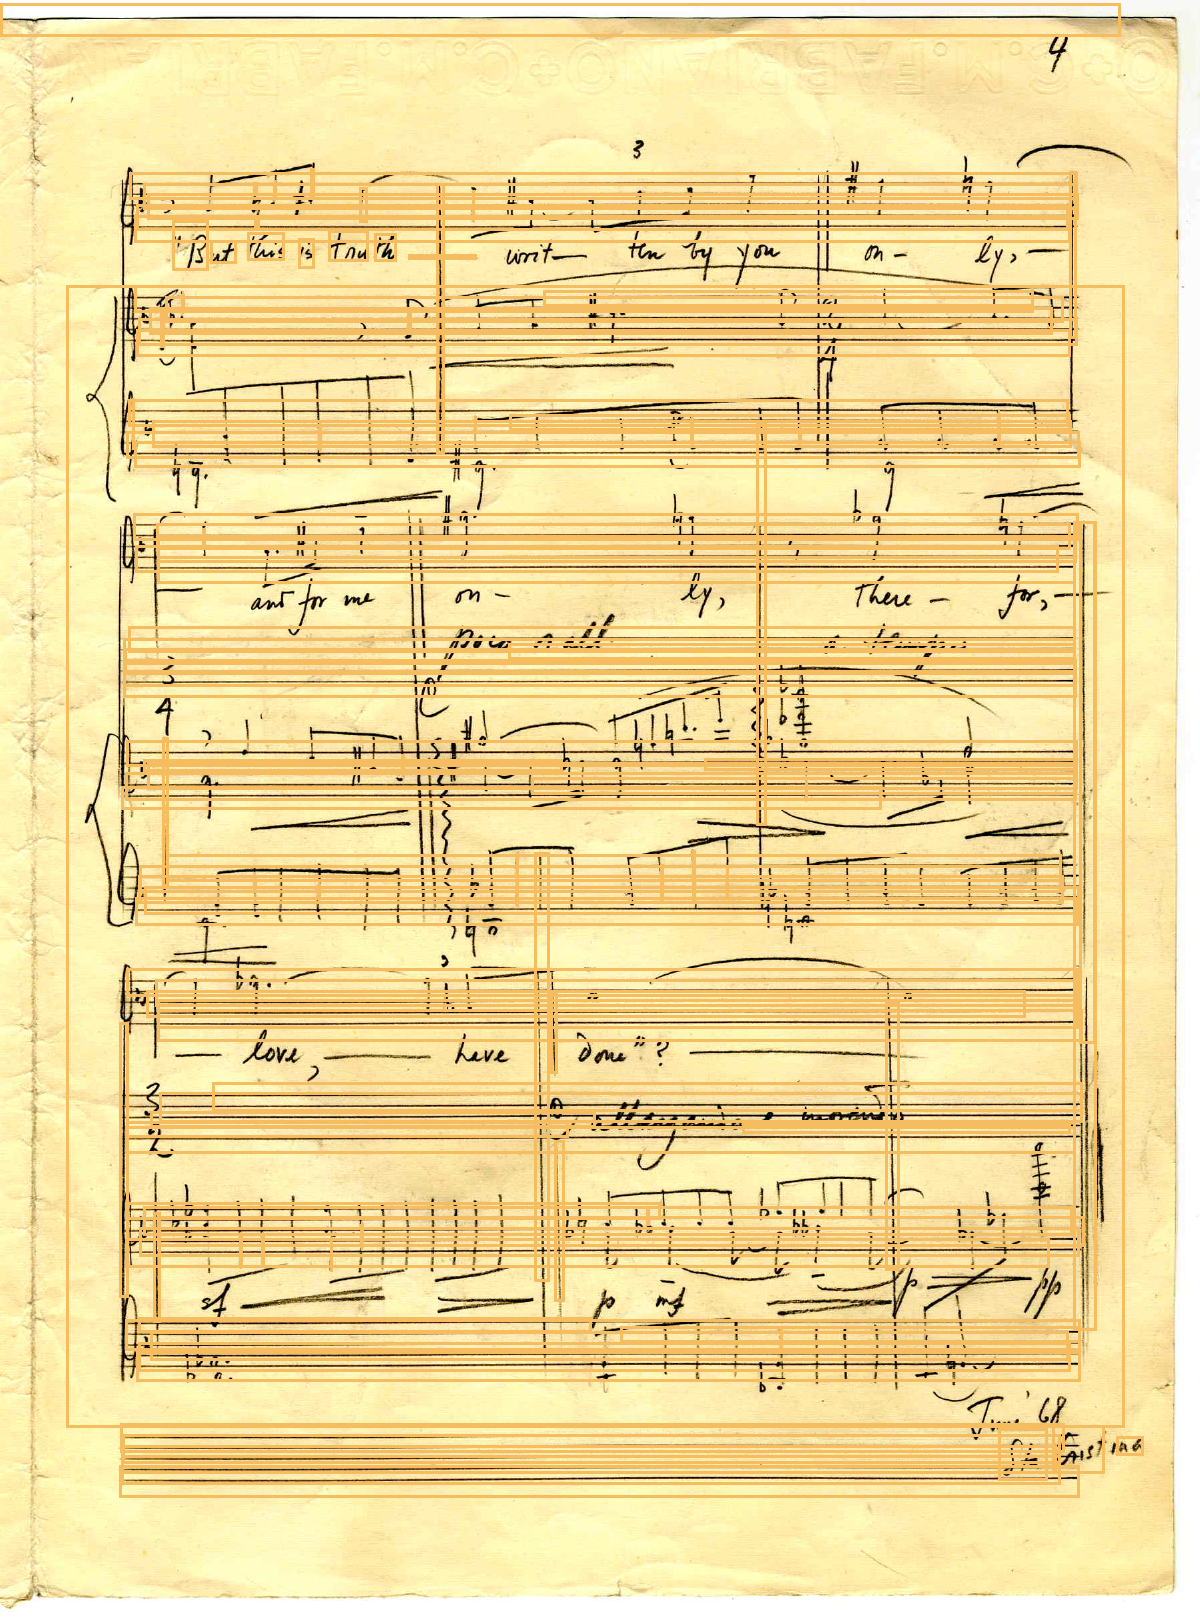 4
3
"But this is truth writ- ten by you on- ly,
and for me on- ly, There- for,
poco rall a tempo
3
4
love, have done"?
3
2
allargando e morendo
sf p mf p pp
June '68